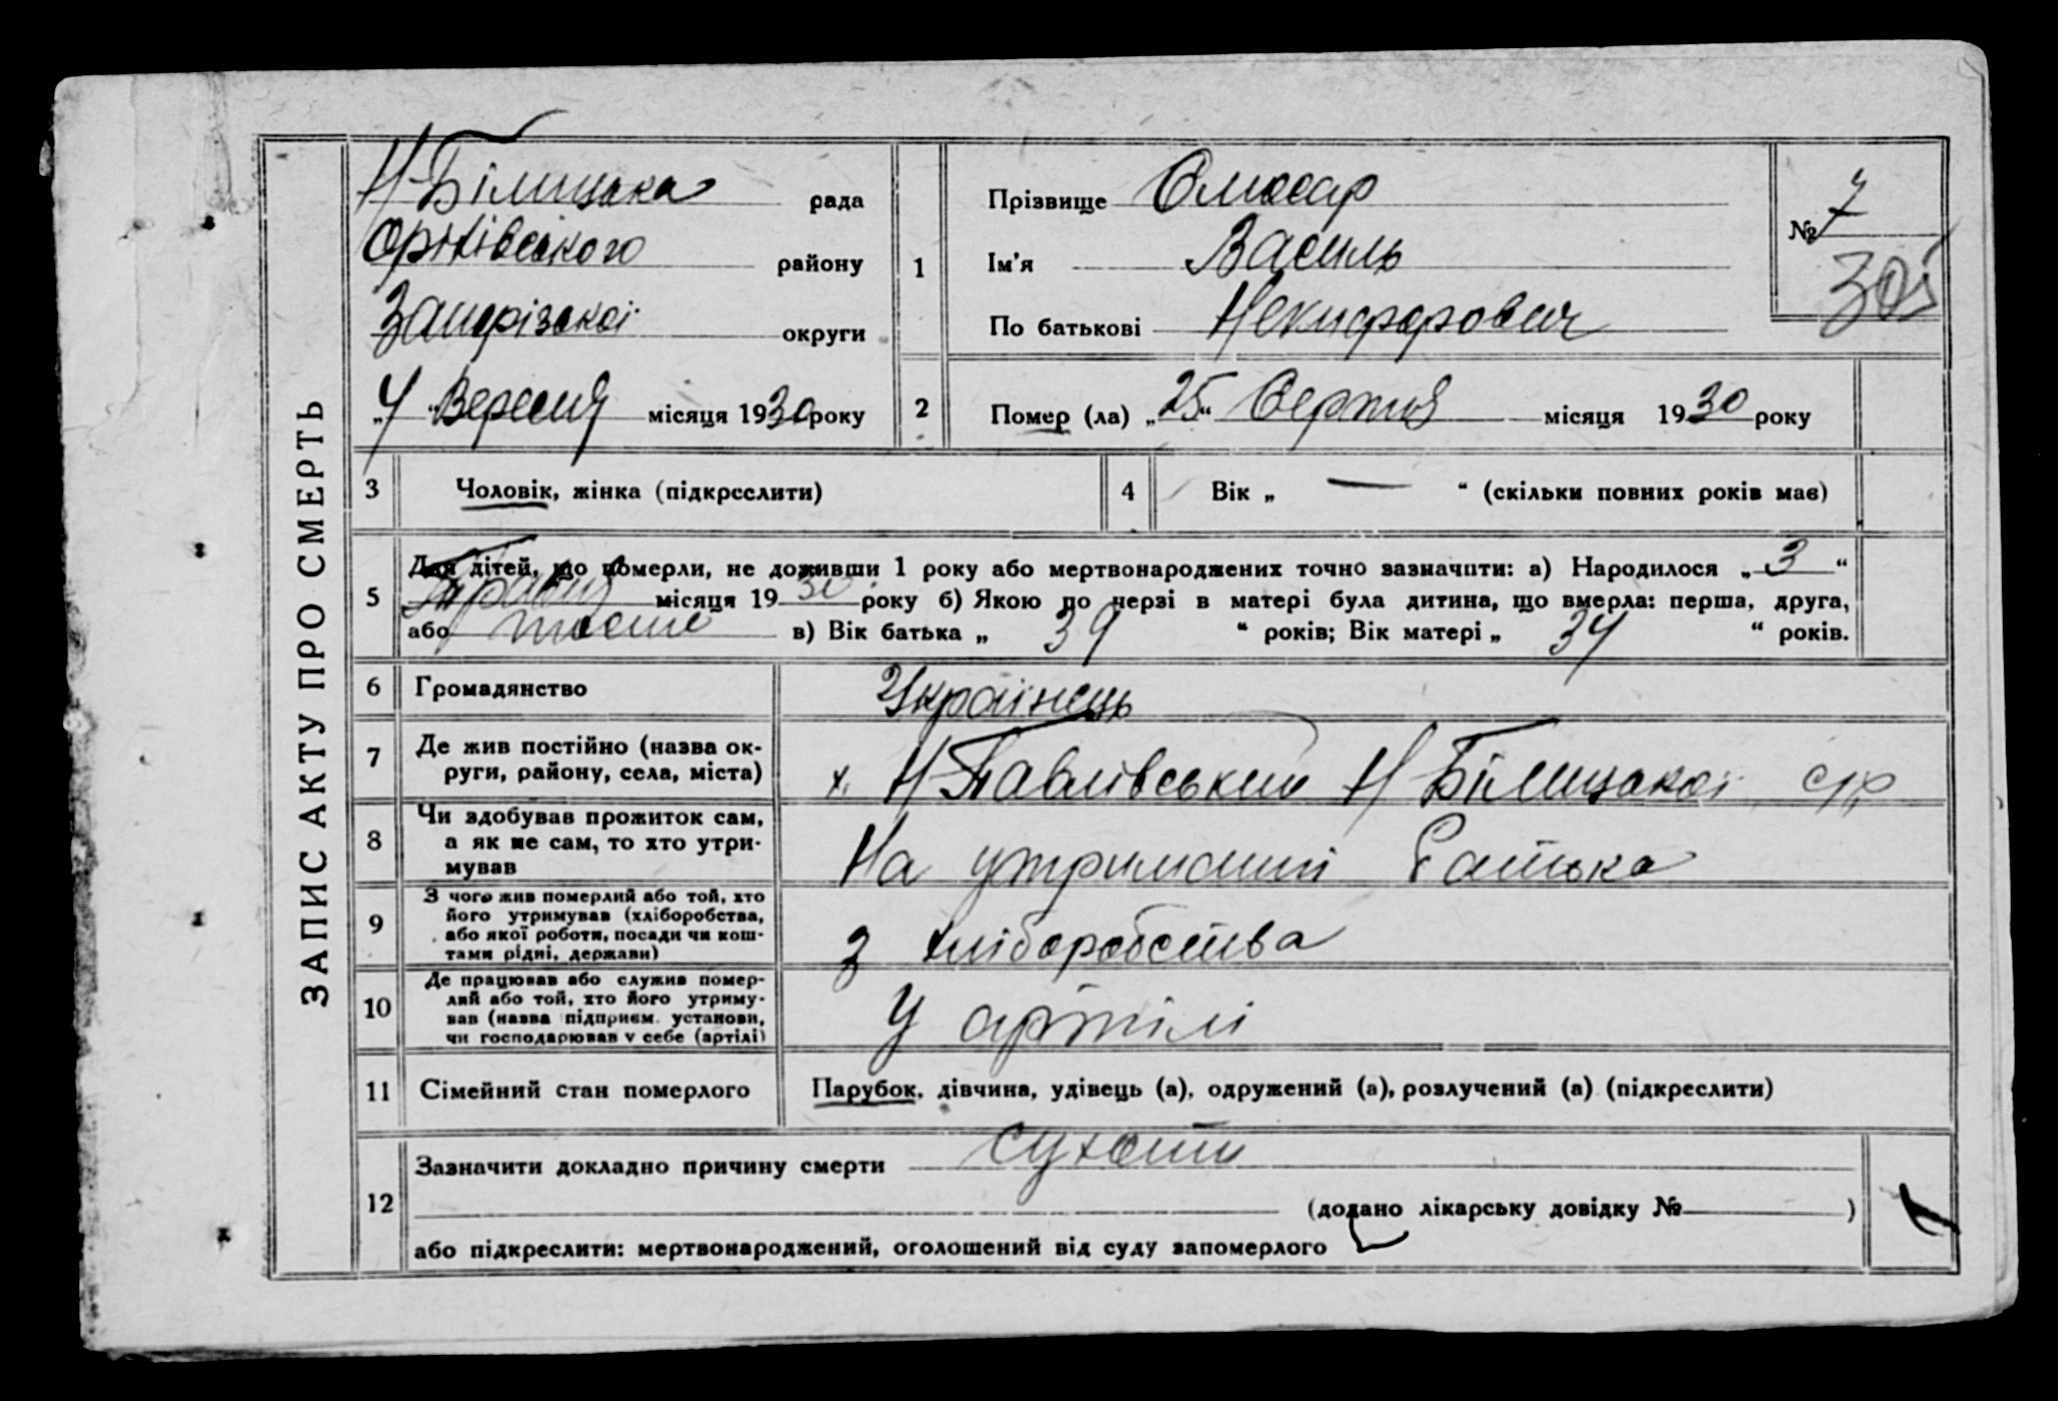 ЗАПИС АКТУ ПРО СМЕРТЬ
Н-Білицька рада
Оріхівського району
Запорізької округи
„4“ Вересня місяця 1930 року
1
Прізвище Слюсар
Ім'я Василь
По батькові Некифорович
№ 7
2
Помер (ла) „25“ Серпня місяця 1930 року
3 Чоловік, жінка (підкреслити)
4 Вік „ — “ (скільки повних років мав)
5
Для дітей, що померли, не доживши 1 року або мертвонароджених точно зазначити: а) Народилося „3“
Травня місяця 1930 року б) Якою по черзі в матері була дитина, що вмерла: перша, друга,
або шосте в) Вік батька „39“ років; Вік матері „34“ років.
6 Громадянство Українець
7 Де жив постійно (назва ок-
руги, району, села, міста) х. Н-Павлівський Н-Білицької с/р
8 Чи здобував прожиток сам,
а як не сам, то хто утри-
мував На утриманні батька
9 З чого жив померлий або той, хто
його утримував (хліборобства,
або якої роботи, посади чи кош-
тами рідні, держави) З хліборобства
10 Де працював або служив помер-
лий або той, хто його утриму-
вав (назва підприєм. установи,
чи господарював у себе (артілі) У артілі
11 Сімейний стан померлого Парубок, дівчина, удівець (а), одружений (а), розлучений (а) (підкреслити)
12
Зазначити докладно причину смерти сухоти
(додано лікарську довідку № )
або підкреслити: мертвонароджений, оголошений від суду запомерлого